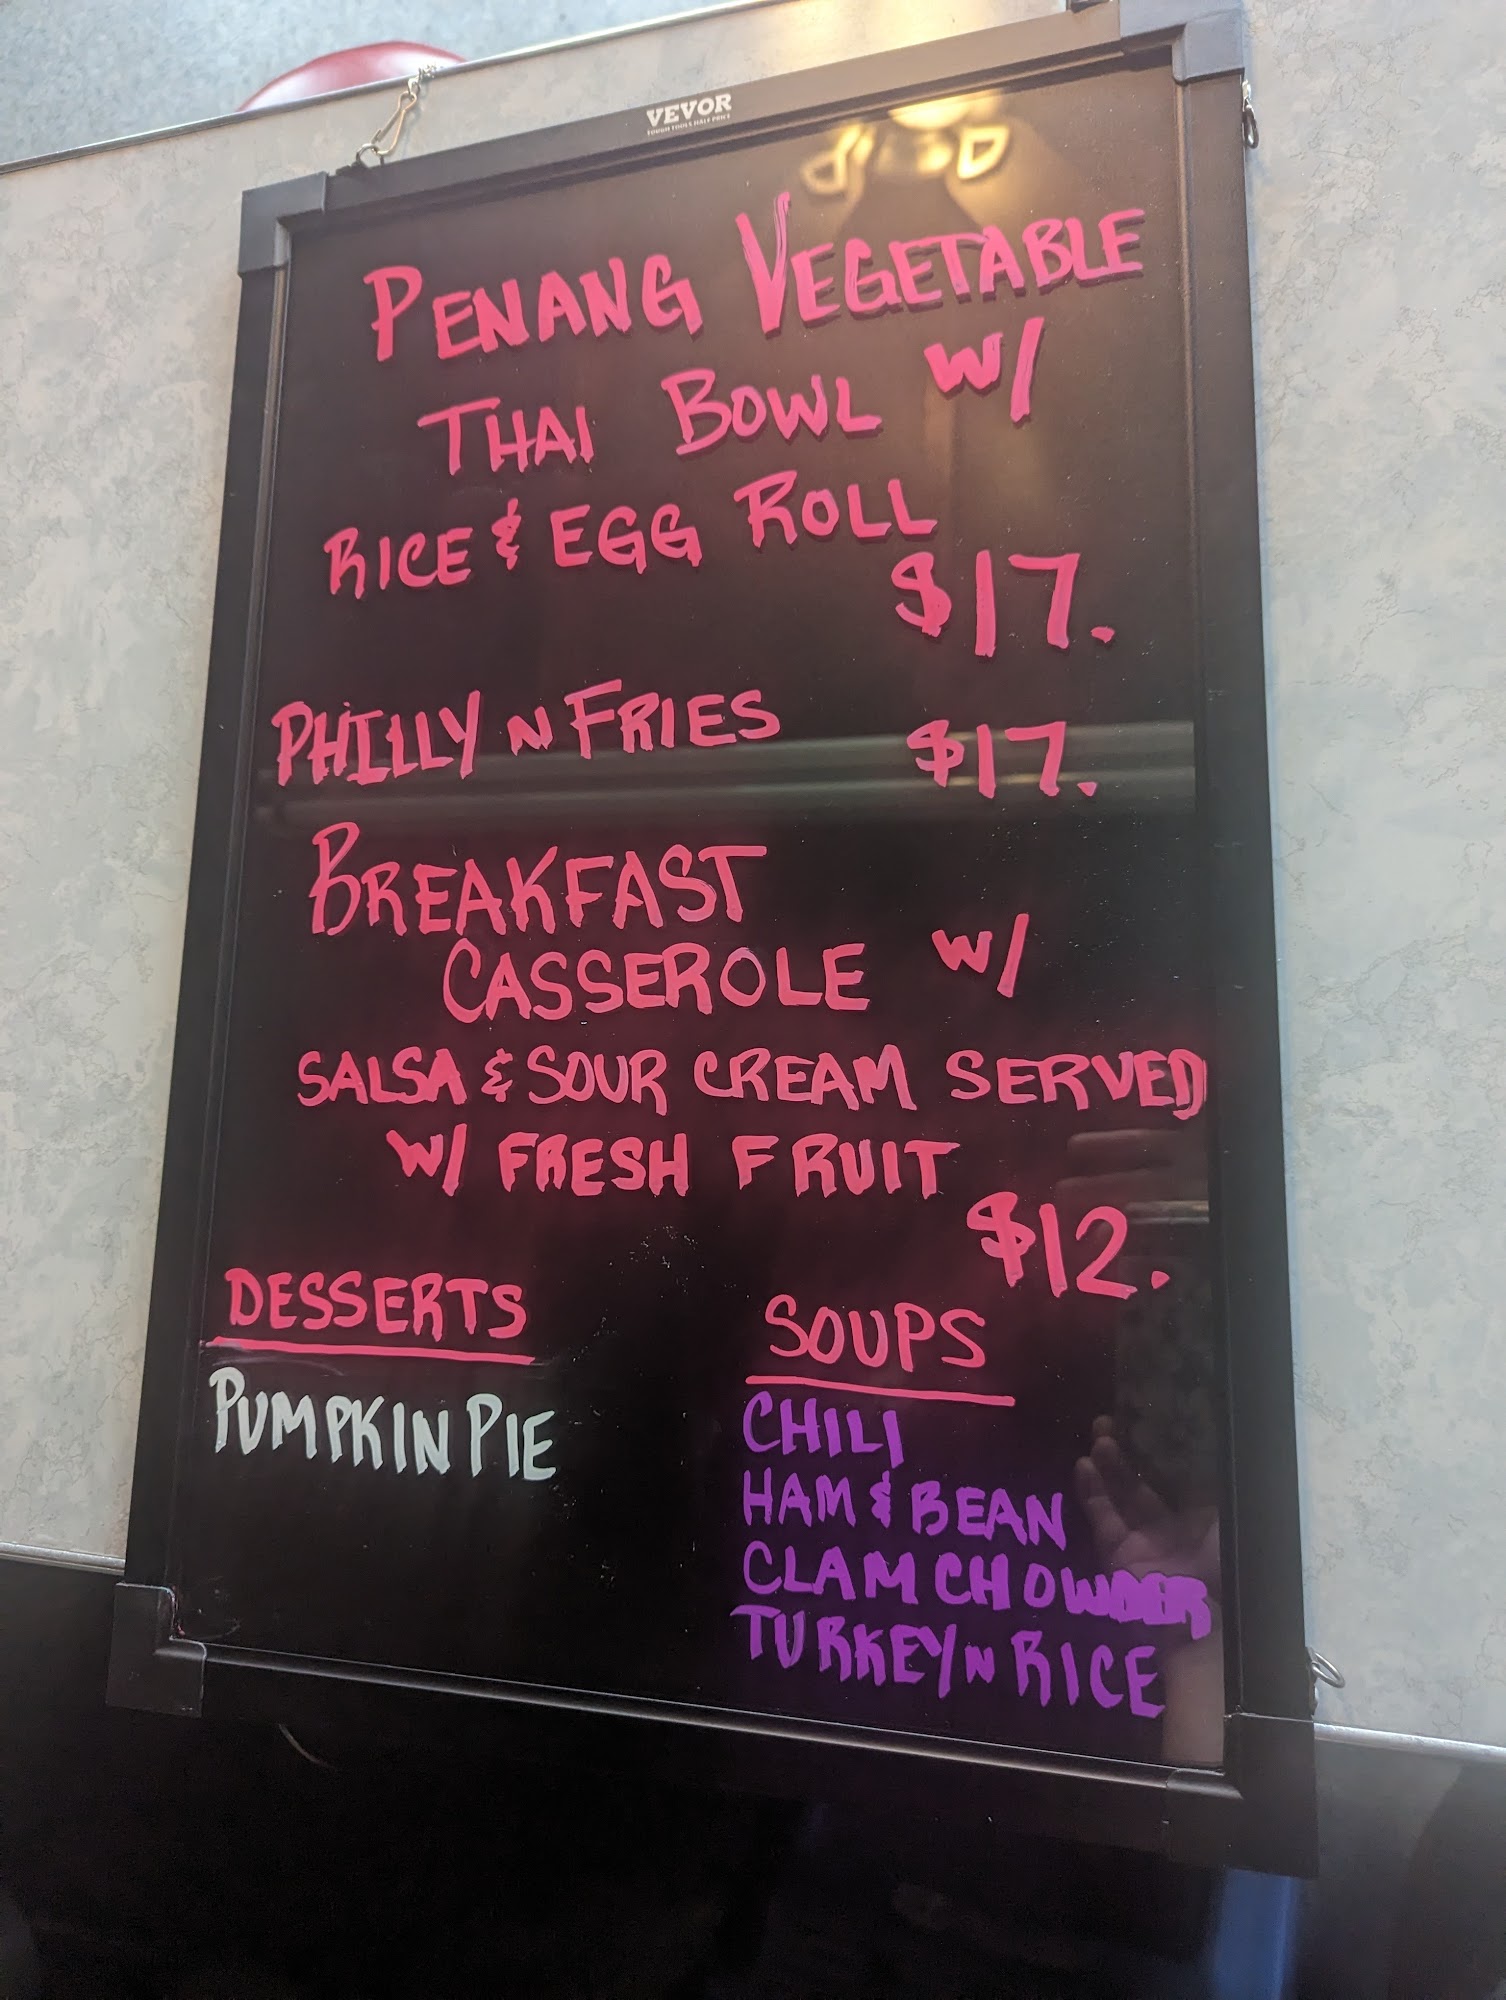 VEVOR
TOUGH TOOLS HALF PRICE
PENANG VEGETABLE
THAI BOWL W/
RICE & EGG ROLL
$17.
PHILLY N FRIES $17.
BREAKFAST
CASSEROLE W/
SALSA & SOUR CREAM SERVED
W/ FRESH FRUIT
$12.
DESSERTS
PUMPKIN PIE
SOUPS
CHILI
HAM & BEAN
CLAM CHOWDER
TURKEY N RICE